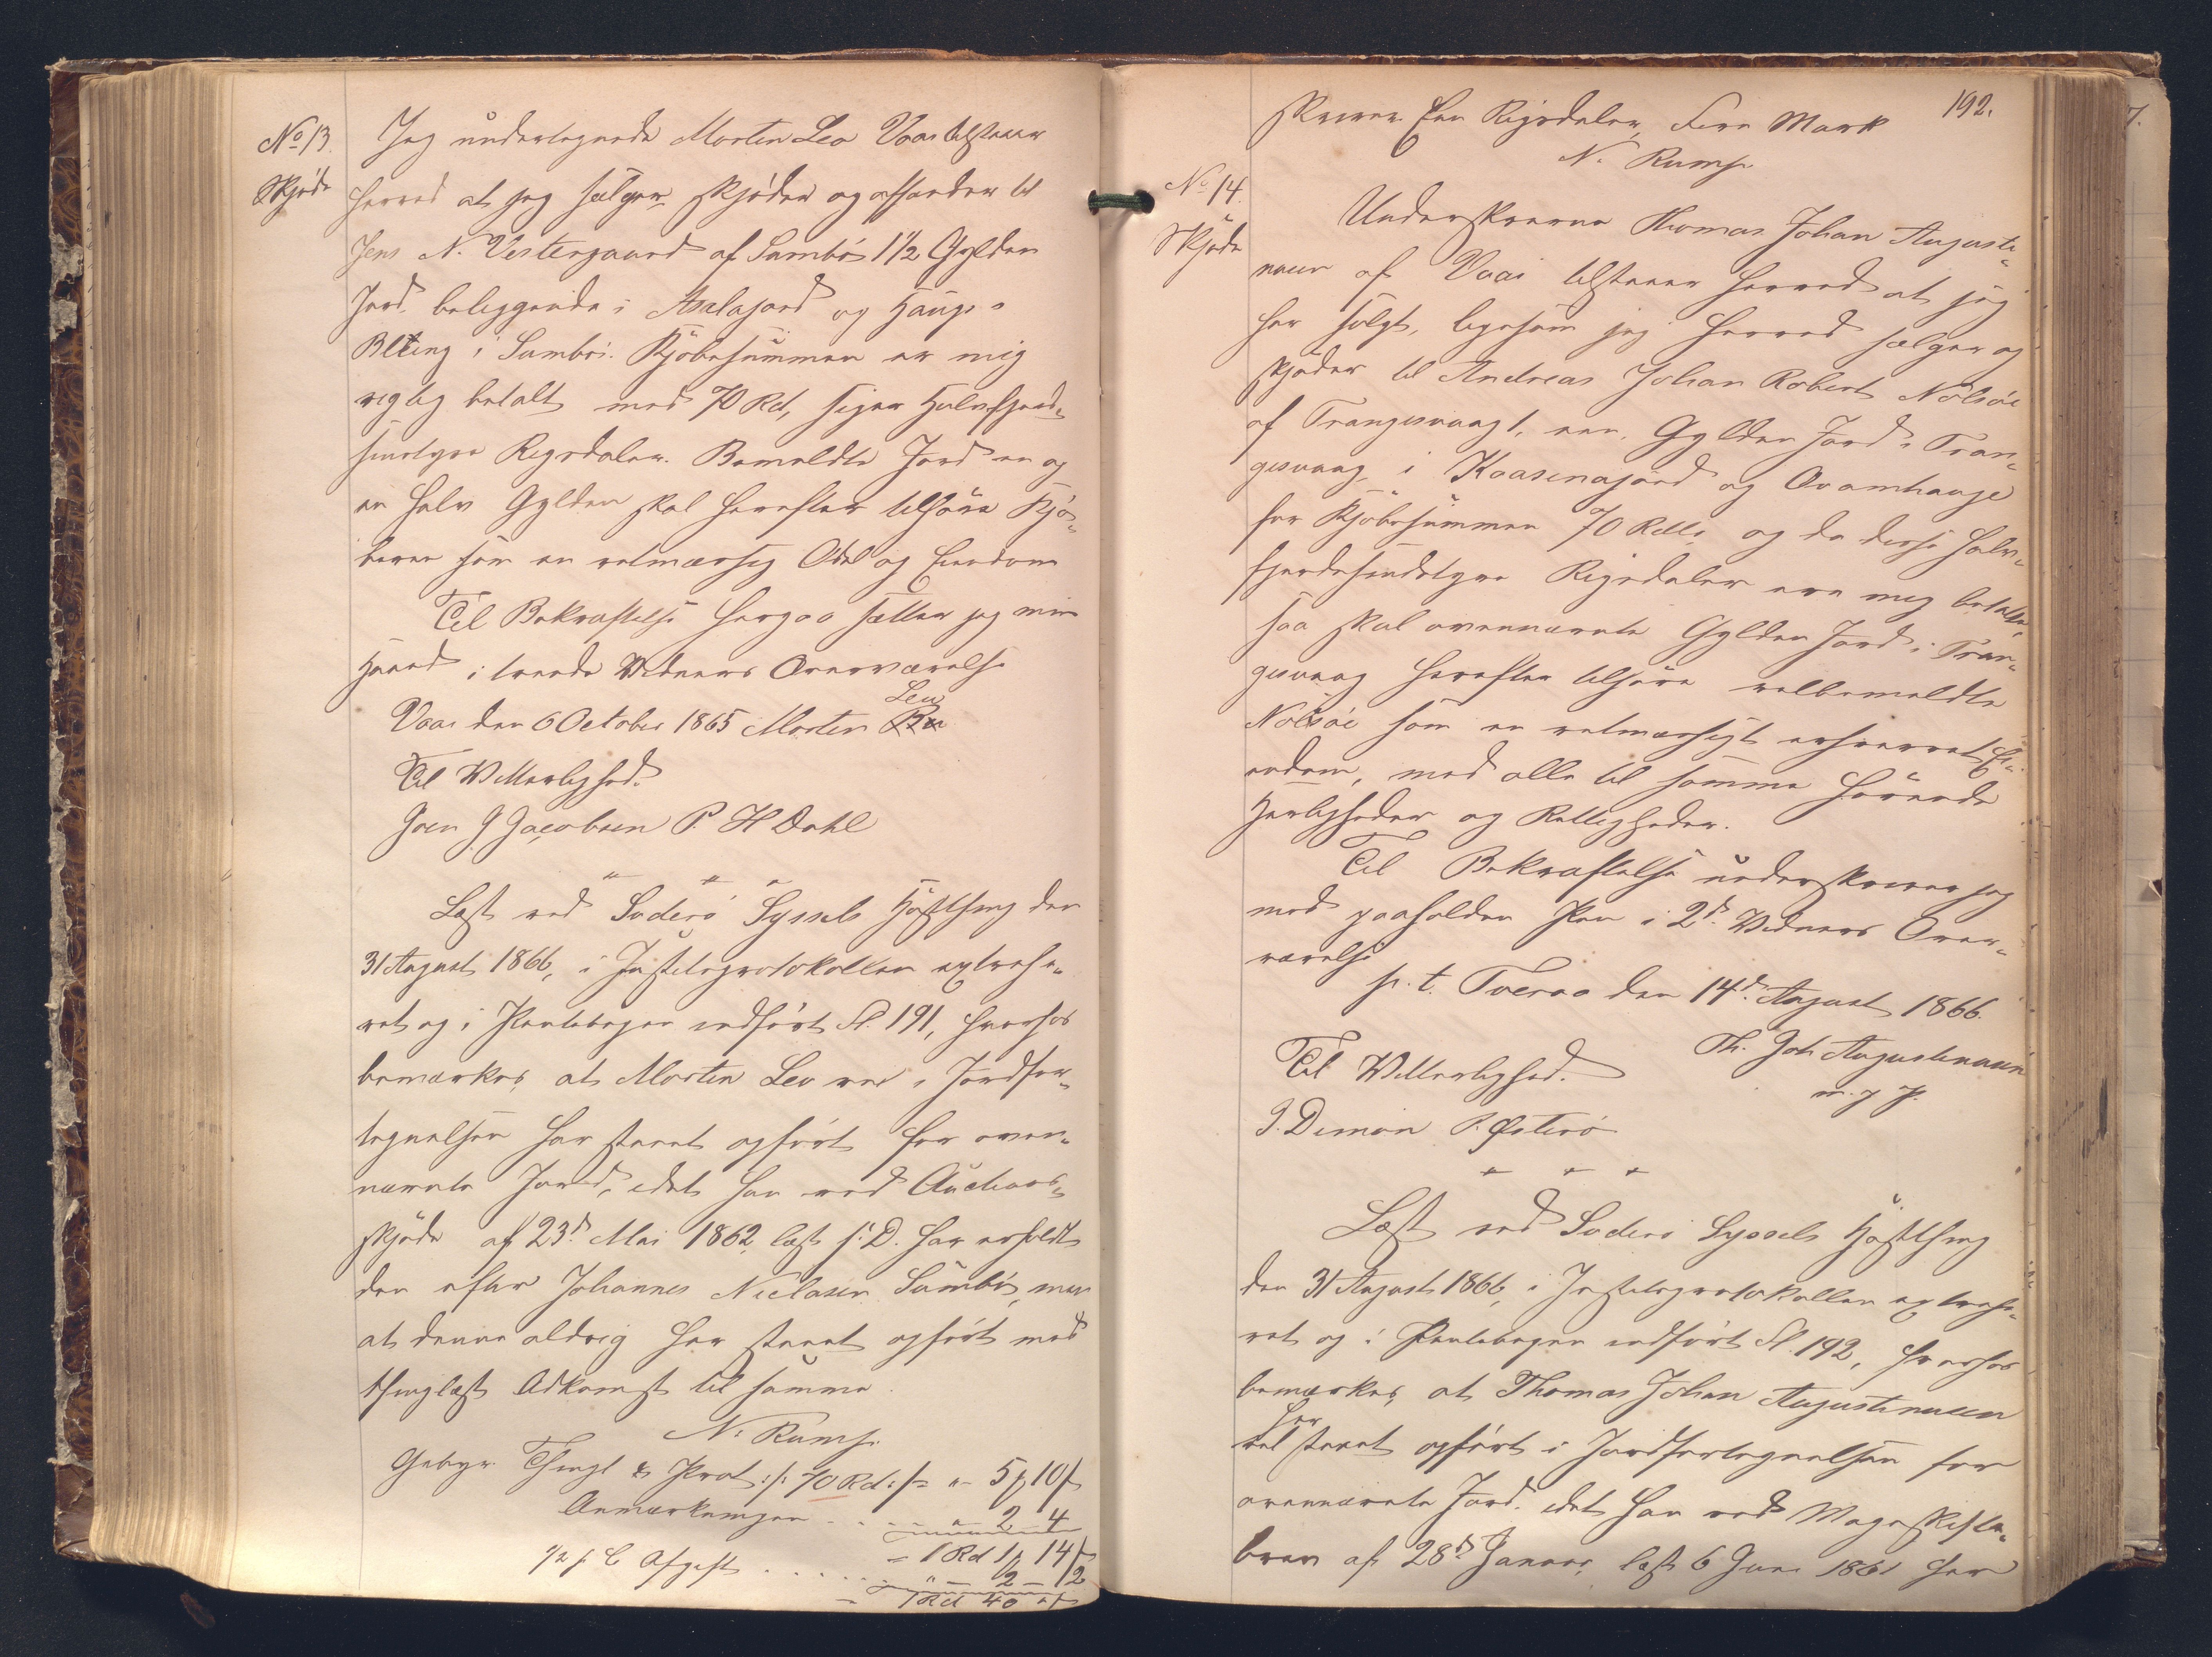 No 13.
Skjöde
Jeg undertegnede Morten Leo Vaae tilstaaer
herved at jeg sælger, skjöder og afhænder til
Jens N. Vestergaard af Sambö 1 1/2 Gylden
Jord beliggende i Aalajord og Hauge
Bitling i Sambö. Kjöbesummen er mig
rigtig betalt med 70 Rd, siger Halvfjerd-
sindstyve Rigsdaler. Bemeldte Jord en og
en halv Gylden skal herefter tilhöre Kjö-
beren som en retmæssig Odel og Eiendom
Til Bekræftelse herpaa sætter jeg min
Haand i tvende Vidners Overværelse
Vaae den 6 October 1865 Morten Leo
Til Vitterlighed.
Joen J Jacobsen P. H Dahl
Læst ved Suderö Syssels Höstthing den
31 August 1866, i Justitsprotokollen extrahe-
ret og i Pantebogen indfört Fl. 191, hvorhos
bemærkes, at Morten Leo vel i Jordfor-
tegnelsen har staaet opfört for oven-
nævnte Jord, idet han ved Auctions-
skjöde af 23d Mai 1862, læst s: D. har erholdt
den efter Johannes Niclasen Sumbö, men
at denne aldrig har staaet opfört med
thinglæst Adkomst til samme.
N. Rump.
Gebyr. Thingl & Prot :/: 70 Rd :/: = " - 5 ꝑ 10 ß
Anmærkningen - - - " - 2 - 4
= 1 Rd 1 ꝑ 14 ß
1/2 p C Afgift . . . . . " - 2 - 2
= 1 Rd 4 ꝑ " ß
192.
skriver Een Rigsdaler, Fire Mark
N. Rump
No 14.
Skjöde
Underskrevne Thomas Johan Augusti-
nussen af Vaai tilstaaer herved at jeg
har solgt, ligesom jeg herved sælger og
skjöder til Andreas Johan Robert Nolsöe
af Trangisvaag 1, een, Gylden Jord i Tran-
gisvaag, i Kaasenajord og Ovamhauge
for Kjöbesummen 70 Rdlr, og da disse halv-
fjerdsindstyve Rigsdaler ere mig betalte,
saa skal ovennævnte Gylden Jord i Tran-
gisvaag herefter tilhöre velbemeldte
Nolsöe som en retmæssigt erhvervet Ei-
endom, med alle til samme hörende
Herligheder og Rettigheder.
Til Bekræftelse underskriver jeg
med paaholden Pen i 2de Vidners Over-
værelse
p. t. Tveraa den 14de August 1866.
Th. Joh Augustinussen
m. p. P.
Til Vitterlighed.
J. Dimon P. Österö
Læst ved Suderö Syssels Höstthing
den 31 August 1866, i Justitsprotokollen extrahe-
ret og i Pantebogen indfört Fl. 192, hvorhos
bemærkes, at Thomas Johan Augustinussen
vel har staaet opfört i Jordfortegnelsen for
ovennævnte Jord, idet han ved Mageskifte-
brev af 28de Januar, læst 6 Juni 1861 har